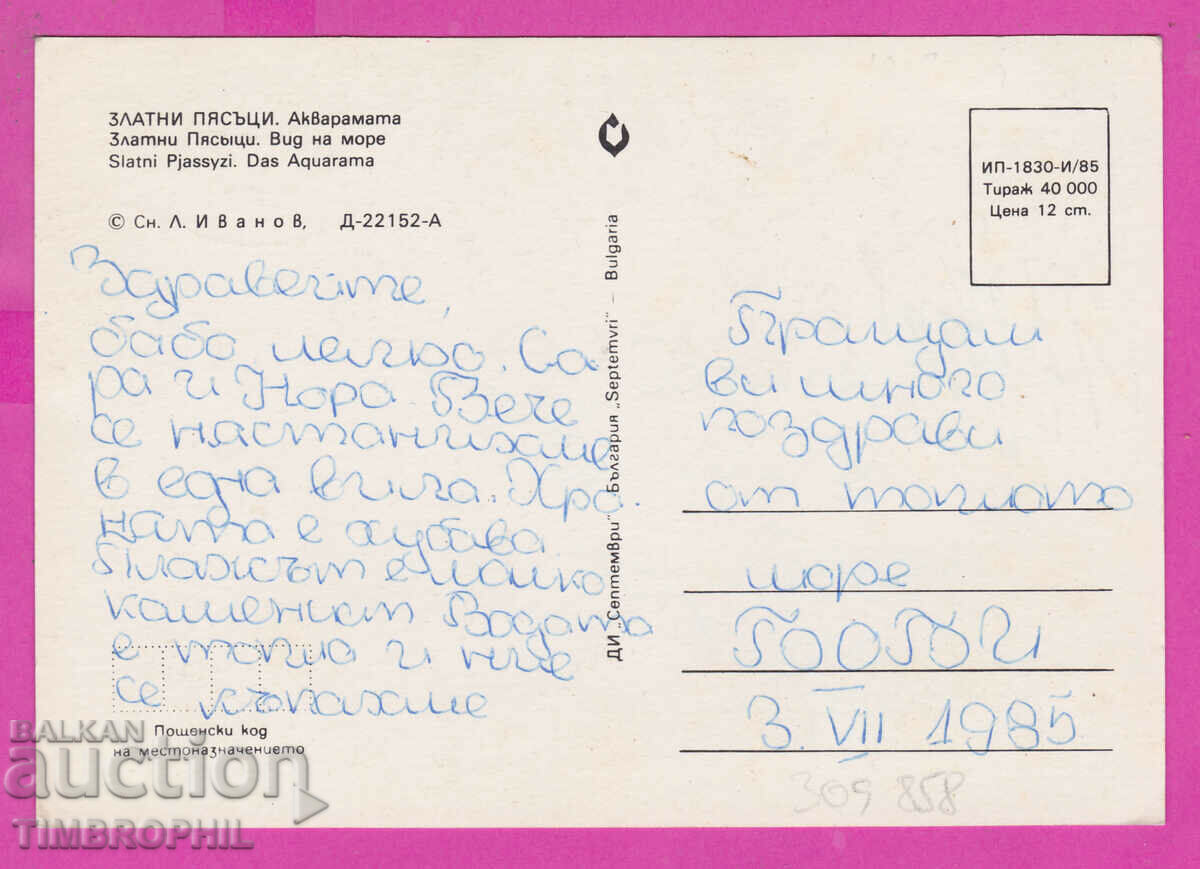 ЗЛАТНИ ПЯСЪЦИ. Акварамата
Златни Пясыци. Вид на море
Slatni Pjassyzi. Das Aquarama
© Сн. Л. Иванов, Д-22152-А
Здравейте,
бабо лелчо. Са-
ра и Нора. Вече
се настанихме
в една вила. Хра-
ната е хубава
Плажът е малко
каменист Водата
е топла и ние
се къпахме
Пощенски код
на местоназначението
ДИ „Септември" България „Septemvri" – Bulgaria
ИП-1830-И/85
Тираж 40 000
Цена 12 ст.
Пращам
ви много
поздрави
от топлото
море
3. VII 1985
309 858
BALKAN
auction
TIMBROPHIL